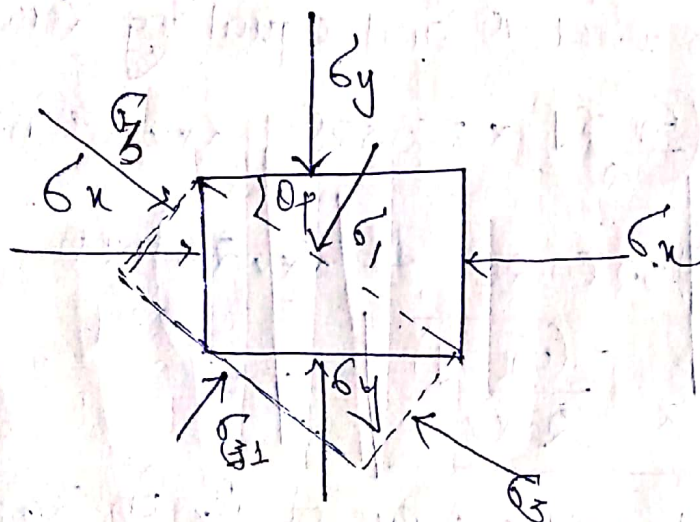 σy
σ3
σx
θp
σ1
σx
σy
σ31
σ3